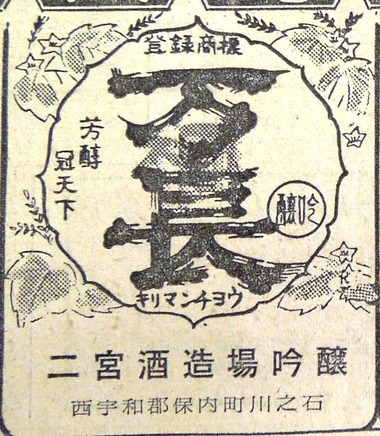 登録商標
万長
芳醇
冠天下
吟釀
キリマンチヨウ
二宮酒造場吟醸
西宇和郡保内町川之石